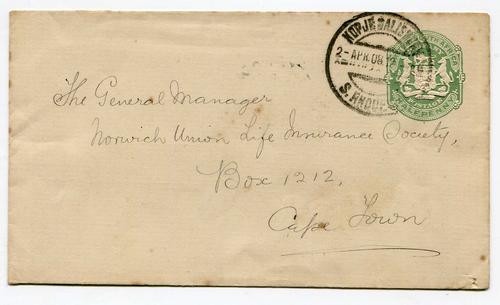 KOPJE SALISBURY
2- APR. 08
S. RHODE
HALFPENNY
The General Manager
Norwich Union Life Insurance Society,
Box 1212,
Cape Town